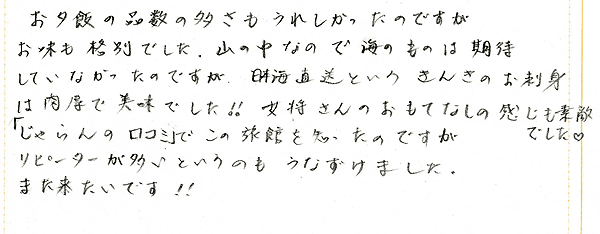 お夕飯の品数の多さもうれしかったのですが
お味も格別でした。山の中なので海のものは期待
していなかったのですが、日本海直送というきんきのお刺身
は肉厚で美味でした!! 女将さんのおもてなしの感じも素敵
でした♡
「じゃらんの口コミ」でこの旅館を知ったのですが
リピーターが多いというのもうなずけました。
また来たいです!!